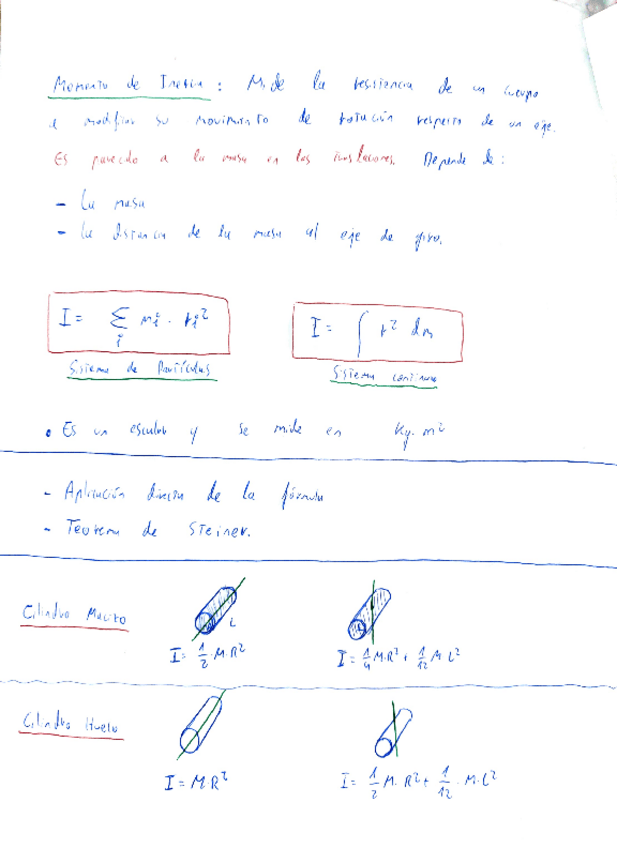 Momento de Inercia: Mide la resistencia de un cuerpo
a modificar su movimiento de rotación respecto de un eje.
Es parecido a la masa en las traslaciones. Depende de:
- La masa
- La distancia de la masa al eje de giro.
I = Σᵢ mᵢ · rᵢ²
I = ∫ r² dm
Sistema de Partículas
Sistema continuo
• Es un escalar y se mide en Kg·m²
- Aplicación directa de la fórmula
- Teorema de Steiner.
Cilindro Macizo
L
I = 1/2 · M·R²
I = 1/4 M·R² + 1/12 M·L²
Cilindro Hueco
I = M·R²
I = 1/2 M·R² + 1/12 · M·L²